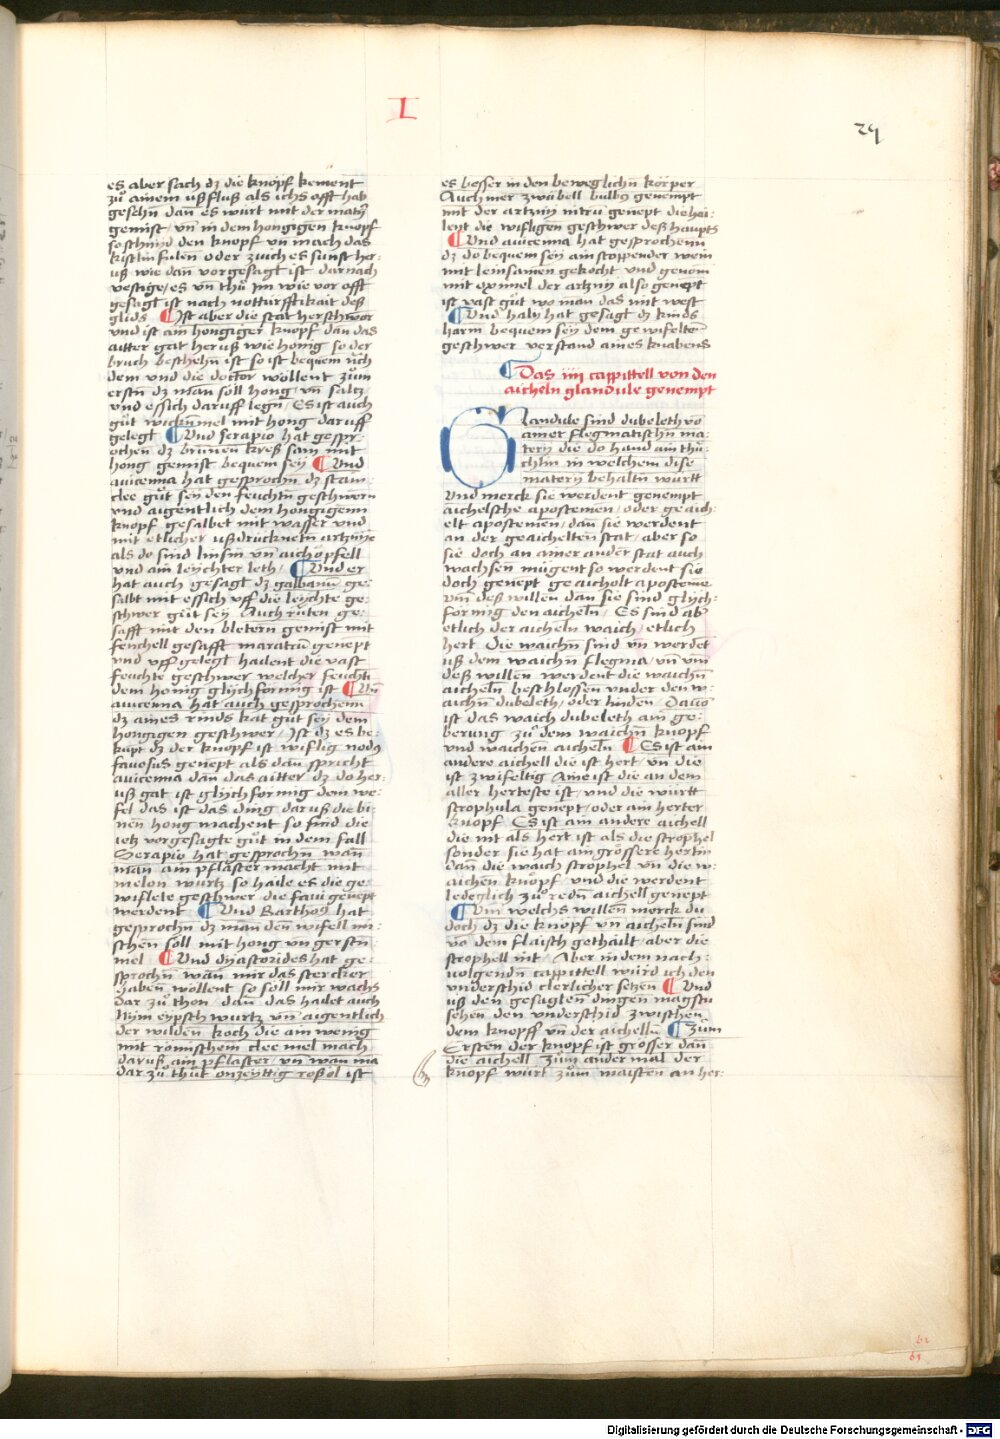 I
29
es aber sach dz die knöpf kement
zů ainem ußfluß als ichs offt hab
geschn dan es würt mit der matȳ
gemist / vn̄ in dem hongigen knopf
so schnijd den knopf vn̄ mach das
kistlin fulen oder zuich es sunst her:
uß wie dan vorgesagt ist darnach
vestige / es vn̄ thů jm wie vor offt
gesagt ist nach notturfftikait deß
glids ¶ Ist aber die stat herschwor
vnd ist ain hongiger knopf dan das
aitter gät heruß wie honig so der
bruch beschehn̄ ist so ist bequem nǎch
dem vnd die doctor wöllent zům
erstn̄ dz man söll hong / vn̄ saltz
vnd essich daruff legn̄ / Es ist auch
gůt wicknmel mit hong daruff
gelegt ¶ Vnd serapio hat gespr:
ochen dz brunnen kreß sam mit
hong gemist bequem sey ¶ Vnd
auicenna hat gesprochn̄ dz stain
clee gůt sey den feuchtn̄ geschwern
vnd aigentlich dem hongigenn
knopf gesalbet mit wasser vnd
mit etlicher ußdrucknetn̄ artznije
als do sind linsin vn̄ aichöpfell
vnd ain leychter leth / ¶ Vnd er
hat auch gesagt dz galbanū ge:
salbt mit essich vff die leychte ge:
schwer gůt sey / Auch ruten ge:
safft mit den bletern gemist mit
fenchell gesafft maratrū genept
vnd vff gelegt hailent die vast
feuchte geschwer welcher feuchti
dem honig glijchförmig ist ¶ Vn̄
auicenna hat auch gesprochenn
dz aines rinds kat gůt sey dem
hongigen geschwer / Ist dz es be:
kupt dz der knopf ist wiflig nodꝰ
fauosus genept als dan spricht
auicenna dan das aitter dz do her:
uß gat ist glijchförmig dem we:
fel das ist das ding dar uß die bi:
nen hong machent so sind die
ietz vorgesagte gůt in dem fall
Serapio hat gesprochn̄ wan̄
man ain pflaster macht mit
melon wurtz so haile es die ge:
wiflete geschwer die faui genept
werdent ¶ Vnd Barthoꝰ hat
gesprochn̄ dz man den wifell mi:
schen söll mit hong vn̄ gerstn̄
mel ¶ Vnd dyascorides hat ge:
sprochn̄ wan̄ mir das stercker
haben̄ wöllent so söll mir wachs
dar zů thon / dan̄ das hailet auch
Nym eypsch wurtz vn̄ aigentlich
der wilden koch die ain wenig
mit römischem clee mel mach
dar uß ain pflaster / vn̄ wan ma
dar zů thůt onzeyttig roßöl ist
es besser in den beweglichn̄ körper
Auch mer zwübell bulbꝰ genempt
mit der artznij nitrū genept die hai:
lent die wifligen geschwer deß haupts
¶ Vnd auicenna hat gesprochenn
dz do bequem sey ain stoppender wein
mit leinsamen gekocht vnd genom̄
mit oximel der artznij also genept
ist vast gůt wo man das mit west
¶ Vnd haly hat gesagt dz kinds
harm bequem sey dem gewifelten̄
geschwer verstand aines knabens
¶ Das iiij cappittell von den
aicheln glandule genempt
Glandule sind dubeleth võ
ainer flegmatischn̄ ma:
tery die do hand ain thů:
chlin in welchem dise
matery behaltn̄ württ
Vnd merck sie werdent genempt
aichelsche apostemen / oder geaich:
elt apostemen / dan sie werdent
an der geaichelten stat / aber so
sie doch an ainer ander stat auch
wachsen mügent so werdent sie
doch genept geaichelt aposteme
vm̄ deß willen dan sie sind glijch:
förmig den aicheln̄ / Es sind abˀ
etlich der aicheln̄ waich / etlich
hert / Die waichn̄ sind vn̄ werdet
uß dem waichn̄ flegma / vn̄ vm̄
deß willen werdent die waichn̄
aicheln beschlossen vnder den w:
aichn̄ dubeleth / oder linden / Dauō
ist das waich dubeleth ain ge:
berung zů dem waichn̄ knopf
vnd waichen aicheln̄ ¶ Es ist ain
andere aichell die ist hert / vn̄ die
ist zwifeltig Aine ist die an dem
aller herteste ist / vnd die württ
strophula genept / oder ain herter
knopf / Es ist ain andere aichell
die nit als hert ist als die strophel
sonder sie hat ain grössere hertin
dan̄ die waich strophel vn̄ die w:
aichen knopf / vnd die werdent
ledeglich zů redn̄ aichell genept
¶ Vm̄ welchs willen merck du
doch dz die knöpf vn̄ aicheln̄ sind
võ dem flaisch gethailt / aber die
strophell nit / Aber in dem nach:
uolgendn̄ cappittell würd ich den
vnderschid clerlicher setzen ¶ Vnd
uß den gesagten̄ dingen magstu
sehen den vnderschid zwischen
dem knopff vn̄ der aichelln̄ ¶ Zům
Ersten der knopf ist grösser dan̄
die aichell / Zům ander mal der
knopf würt zům maisten an her:
Digitalisierung gefördert durch die Deutsche Forschungsgemeinschaft - DFG